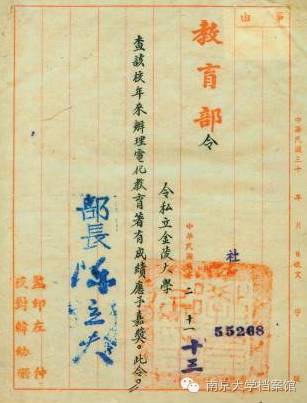 事由
教育部 令
中華民國三十 年 月 日收文 字 號
社
55268
中華民國
二 十一 十三
令私立金陵大學
查該校年來辦理電化教育著有成績應予嘉獎。此令。
部長 陳立夫
監印 左 仲
校對 韓幼
南京大学档案馆